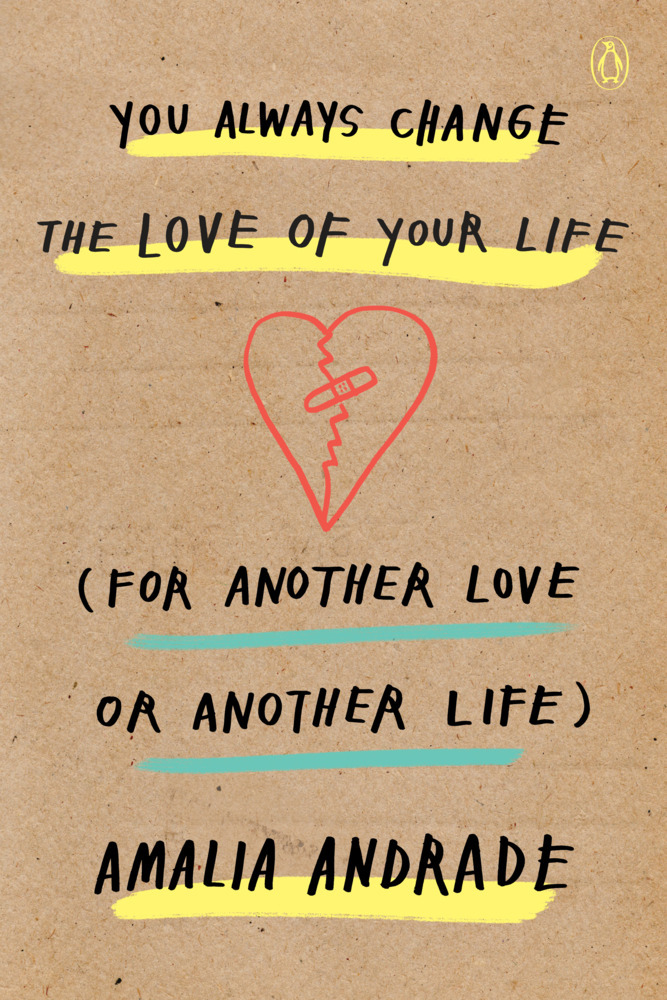 YOU ALWAYS CHANGE
THE LOVE OF YOUR LIFE
(FOR ANOTHER LOVE
OR ANOTHER LIFE)
AMALIA ANDRADE